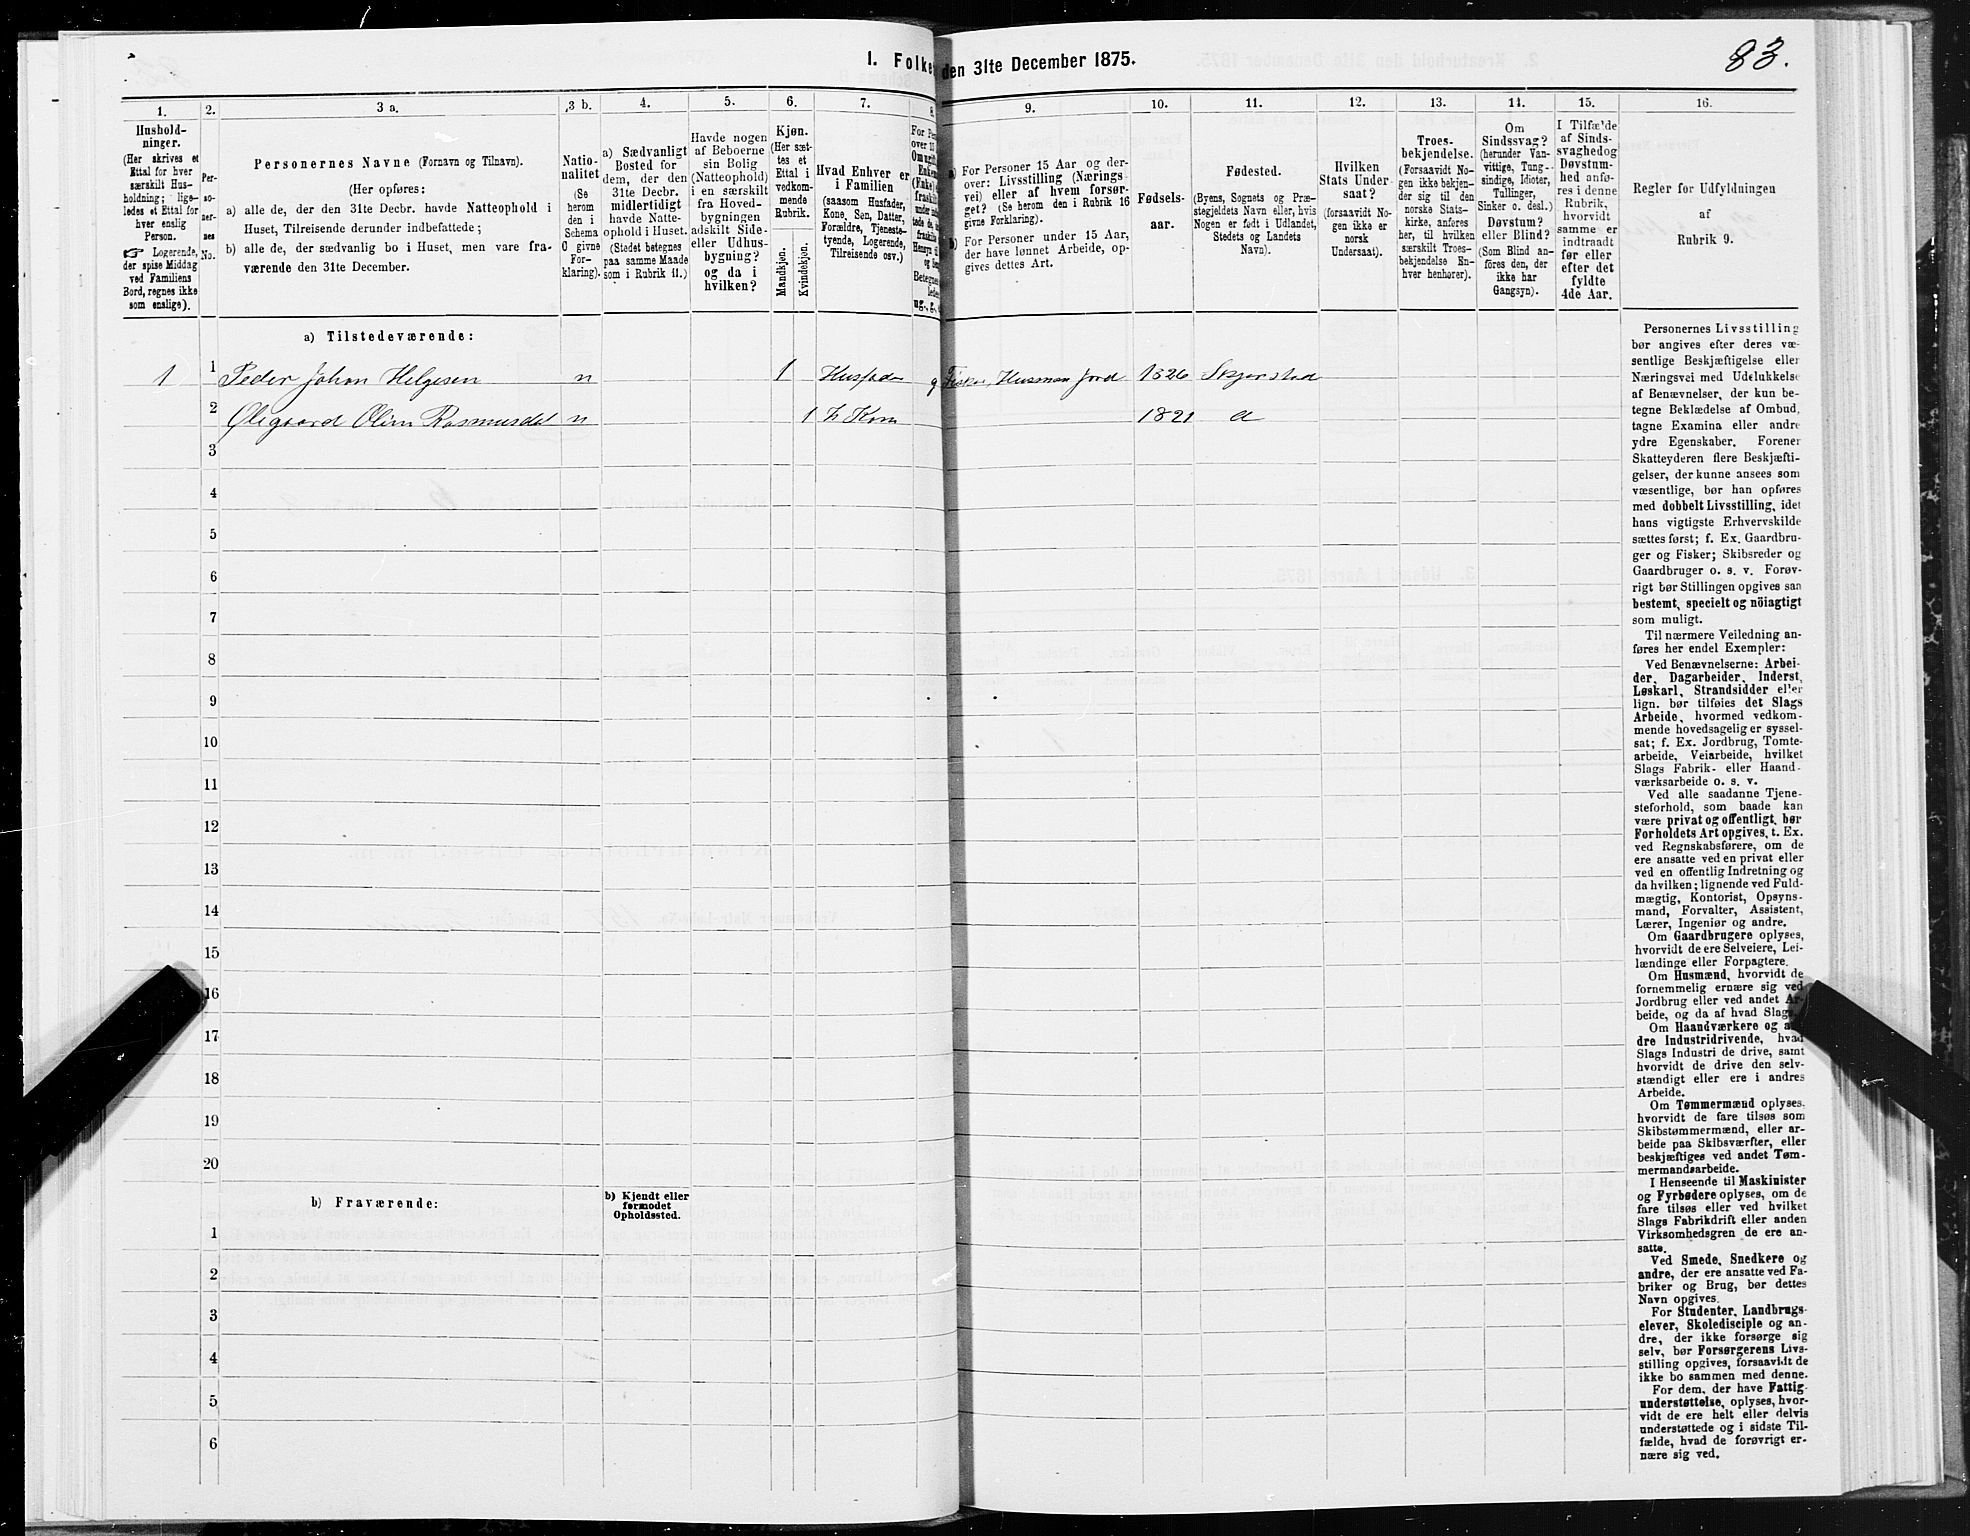 1. Folke
den 31te December 1875.
83.
1.
2.
3 a.
3 b.
4.
5.
6.
7.
8.
9.
10.
11.
12.
13.
14.
15.
16.
Hushold-
ninger.
(Her skrives et
Ettal for hver
særskilt Hus-
holdning; lige-
ledes et Ettal for
hver enslig
Person.
☞ Logerende,
der spise Middag
ved Familiens
Bord, regnes ikke
som enslige).
Per-
so-
ner-
nes
No.
Personernes Navne (Fornavn og Tilnavn).
(Her opføres:
a) alle de, der den 31te Decbr. havde Natteophold i
Huset, Tilreisende derunder indbefattede;
b) alle de, der sædvanlig bo i Huset, men vare fra-
værende den 31te December.
Natio-
nalitet
(Se
herom
den i
Schema
C givne
For-
klaring).
a) Sædvanligt
Bosted for
dem, der den
31te Decbr.
midlertidigt
havde Natte-
ophold i Huset.
(Stedet betegnes
paa samme Maade
som i Rubrik 11.)
Havde nogen
af Beboerne
sin Bolig
(Natteophold)
i en særskilt
fra Hoved-
bygningen
adskilt Side-
eller Udhus-
bygning?
og da i
hvilken?
Kjøn.
(Her sæt-
tes et
Ettal i
vedkom-
mende
Rubrik.
Mandkjøn.
Kvindekjøn.
Hvad Enhver er
i Familien
(saasom Husfader,
Kone, Søn, Datter,
Forældre, Tjeneste-
tyende, Logerende,
Tilreisende osv.)
For Pe
over 15
Betegnes
ug., g.,
a) For Personer 15 Aar og der-
over: Livsstilling (Nærings-
vei) eller af hvem forsør-
get? (Se herom den i Rubrik 16
givne Forklaring).
b) For Personer under 15 Aar,
der have lønnet Arbeide, op-
gives dettes Art.
Fødsels-
aar.
Fødested.
(Byens, Sognets og Præ-
stegjeldets Navn eller, hvis
Nogen er født i Udlandet,
Stedets og Landets
Navn).
Hvilken
Stats Under-
saat?
(forsaavidt No-
gen ikke er
norsk
Undersaat).
Troes-
bekjendelse.
(Forsaavidt No-
gen ikke bekjen-
der sig til den
norske Stats-
kirke, anføres
her, til hvilken
særskilt Troes-
bekjendelse En-
hver henhører).
Om
Sindssvag?
(herunder Van-
vittige, Tung-
sindige, Idioter,
Tullinger,
Sinker o. desl.)
Døvstum?
eller Blind?
(Som Blind an-
føres den, der
ikke har
Gangsyn).
I Tilfælde
af Sinds-
svaghed og
Døvstum-
hed anfø-
res i denne
Rubrik,
hvorvidt
samme er
indtraadt
før eller
efter det
fyldte
4de Aar.
Regler for Udfyldningen
af
Rubrik 9.
a) Tilstedeværende:
1 1 Peder Johan Helgesen n 1 Husfader g Fisker, Husman Jord 1826 Skjerstad
2 Olegaard Olina Rasmusdat n 1 h Kone 1821 a
3
4
5
6
7
8
9
10
11
12
13
14
15
16
17
18
19
20
b) Fraværende:
b) Kjendt eller
formodet
Opholdssted.
1
2
3
4
5
6
Personernes Livsstilling
bør angives efter deres væ-
sentlige Beskjæftigelse eller
Næringsvei med Udelukkelse
af Benævnelser, der kun be-
tegne Beklædelse af Ombud,
tagne Examina eller andre
ydre Egenskaber. Forener
Skatteyderen flere Beskjæfti-
gelser, der kunne ansees som
væsentlige, bør han opføres
med dobbelt Livsstilling, idet
hans vigtigste Erhvervskilde
sættes først; f. Ex. Gaardbru-
ger og Fisker; Skibsreder og
Gaardbruger o. s. v. Forøv-
rigt bør Stillingen opgives saa
bestemt, specielt og nöiagtigt
som muligt.
Til nærmere Veiledning an-
føres her endel Exempler:
Ved Benævnelserne: Arbei-
der, Dagarbeider, Inderst,
Løskarl, Strandsidder eller
lign. bør tilføies det Slags
Arbeide, hvormed vedkom-
mende hovedsagelig er syssel-
sat; f. Ex. Jordbrug, Tomte-
arbeide, Veiarbeide, hvilket
Slags Fabrik- eller Haand-
værksarbeide o. s. v.
Ved alle saadanne Tjene-
steforhold, som baade kan
være privat og offentligt, bør
Forholdets Art opgives, t. Ex.
ved Regnskabsførere, om de
ere ansatte ved en privat eller
ved en offentlig Indretning og
da hvilken; lignende ved Fuld-
mægtig, Kontorist, Opsyns-
mand, Forvalter, Assistent,
Lærer, Ingeniør og andre.
Om Gaardbrugere oplyses,
hvorvidt de ere Selveiere, Lei-
lændinge eller Forpagtere.
Om Husmænd, hvorvidt de
fornemmelig ernære sig ved
Jordbrug eller ved andet Ar-
beide, og da af hvad Slags.
Om Haandværkere og an-
dre Industridrivende, hvad
Slags Industri de drive, samt
hvorvidt de drive den selv-
stændigt eller ere i andres
Arbeide.
Om Tømmermænd oplyses,
hvorvidt de fare tilsøs som
Skibstømmermænd, eller ar-
beide paa Skibsværfter, eller
beskjæftiges ved andet Tøm-
mermandsarbeide.
I Henseende til Maskinister
og Fyrbødere oplyses, om de
fare tilsøs eller ved hvilket
Slags Fabrikdrift eller anden
Virksomhedsgren de ere an-
satte.
Ved Smede, Snedkere og
andre, der ere ansatte ved Fa-
briker og Brug, bør dettes
Navn opgives.
For Studenter, Landbrugs-
elever, Skoledisciple og an-
dre, der ikke forsørge sig
selv, bør Forsørgerens Livs-
stilling opgives, forsaavidt de
ikke bo sammen med denne.
For dem, der have Fattig-
understøttelse, oplyses, hvor-
vidt de ere helt eller delvis
understøttede og i sidste Til-
fælde, hvad de forøvrigt er-
nære sig ved.